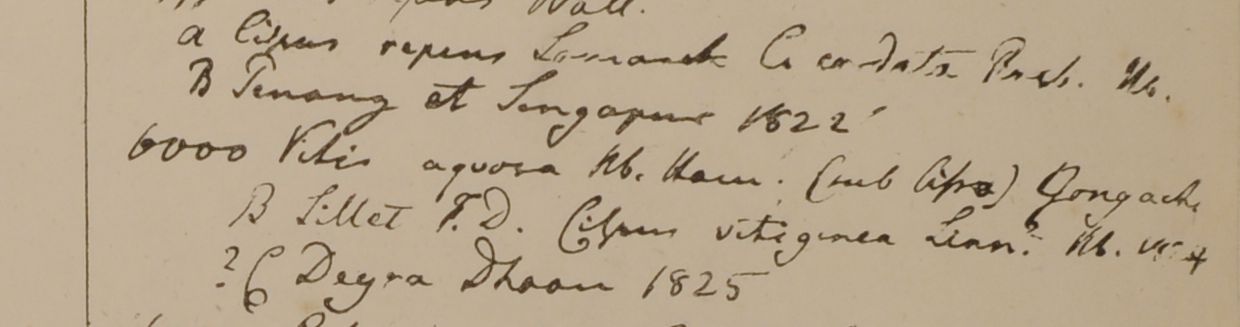 Wall.
a Cissus repens Lamarck C. cordata Roxb. Hb.
B Penang et Singapur 1822
6000 Vitis aquosa Hb. Ham. (sub Cisso) Gongachi
B Sillet F.D. Cissus vitiginea Linn.? Hb.
? C Deyra Dhoon 1825